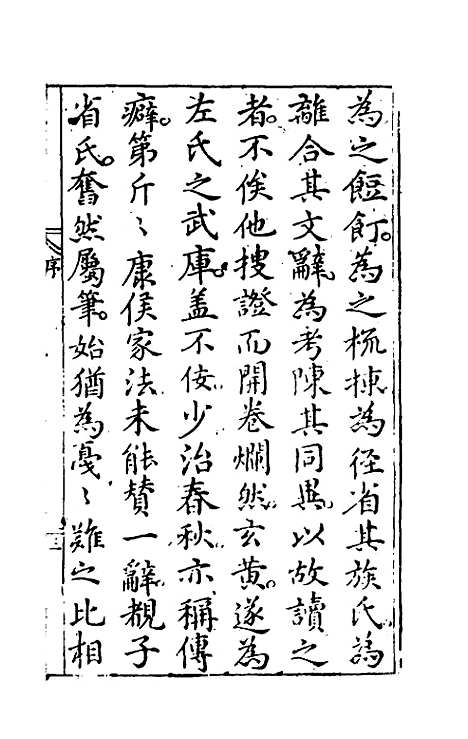 為之餖飣。為之梳揀。為徑省其族氏。為
離合其文辭。為考陳其同異。以故讀之
者。不俟他搜證而開卷爛然玄黄。遂為
左氏之武庫。盖不佞少治春秋。亦稱傳
癖。第斤〻康侯家法未能賛一辭。覩子
省氏。奮然屬筆。始猶為戞〻難之比相
序
三